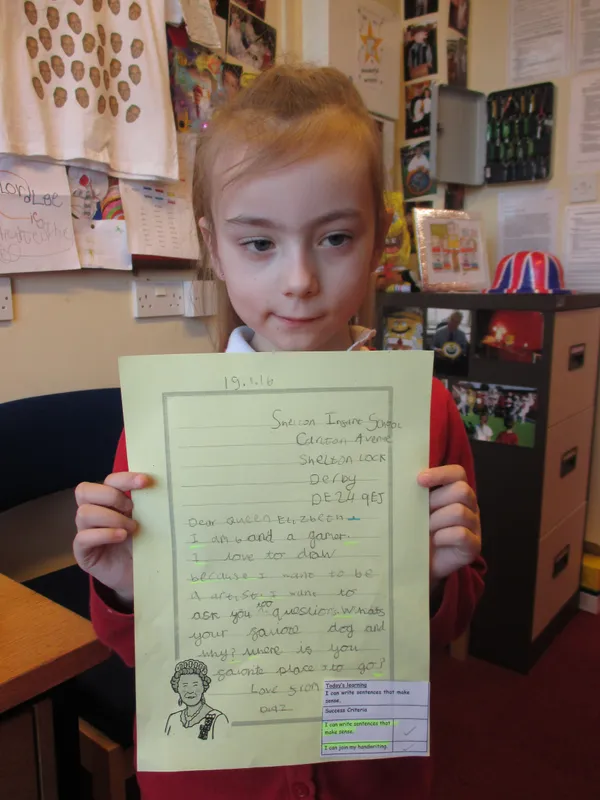 19.1.16
Shelton Infant School
Carlton Avenue
Shelton Lock
Derby
DE24 9EJ
Dear Queen Elizbeth
I am 6 and a gamer.
I love to draw
because I want to be
a artist. I want to
ask you too question. Whats
your favorite dog and
why? where is you
favorite place to go?
Love from
Today's learning
I can write sentences that make
sense.
Success Criteria
I can write sentences that
make sense.
I can join my handwriting.